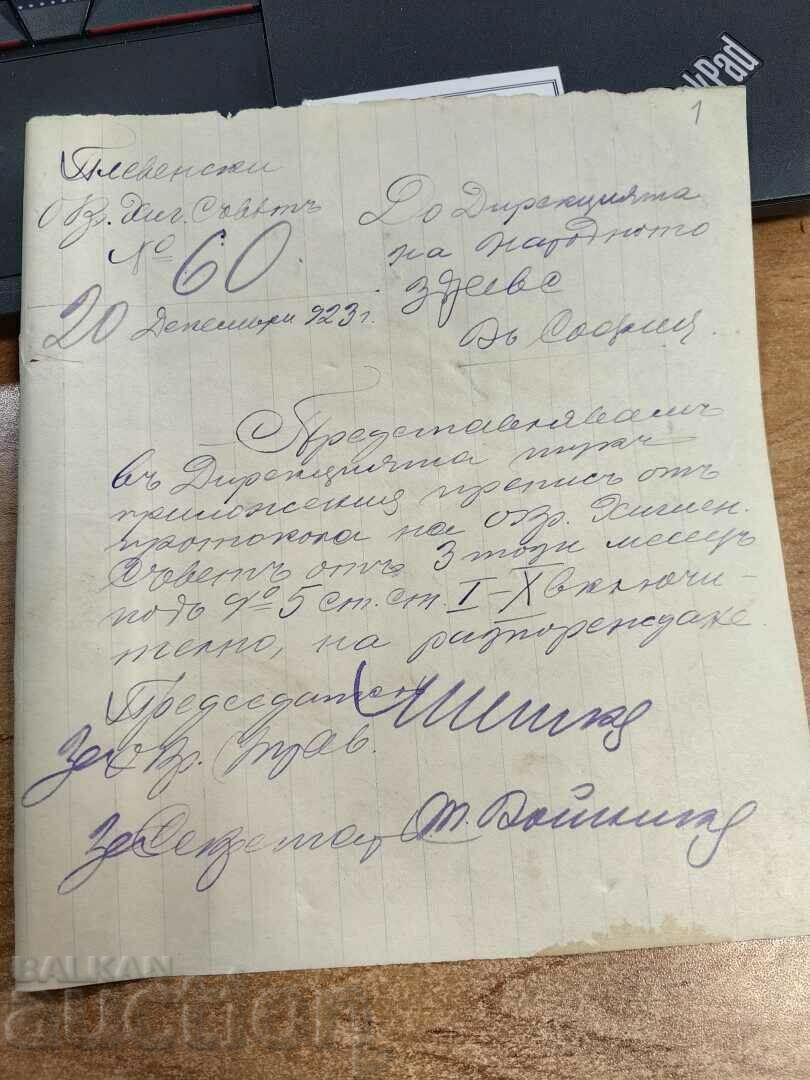 Плевенски
Окр. Хиг. Съветъ
№ 60
20 Декемврий 923 г.
1
До Дирекцията
на народното
здраве
Въ София
Представляваме
въ Дирекцията тука
приложения препис отъ
протокола на окр. Хигиен.
Съветъ отъ 3 този месецъ
подъ № 5 ст. ст. I–X включи-
телно, на разпореждане.
Председател
За Окр.
За Секретар
BALKAN
auction
kPad